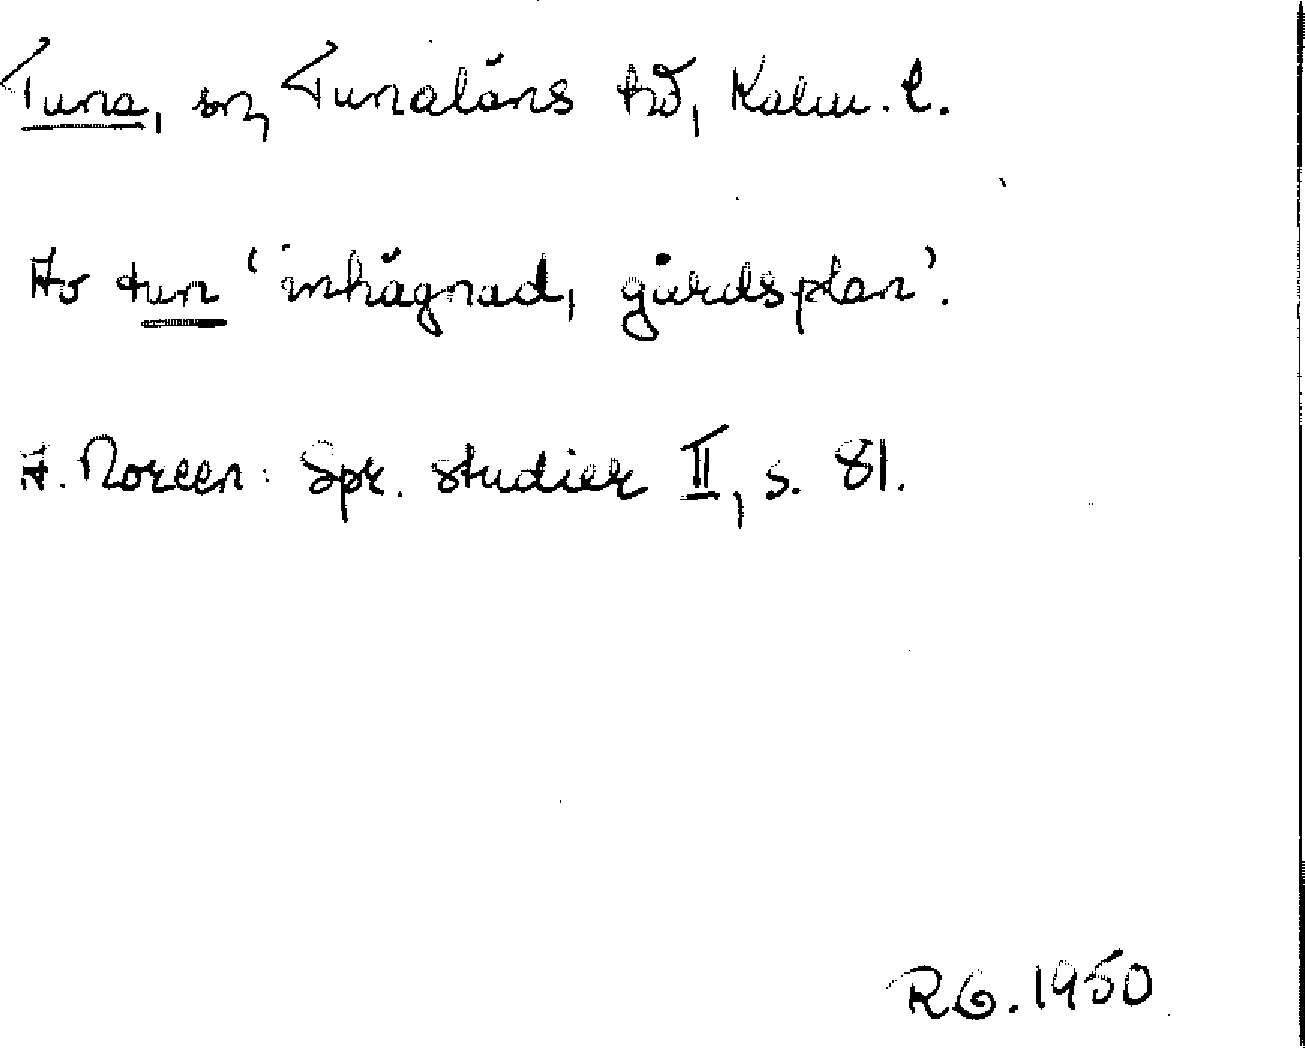 Tuna, sn, Tunaläns hd, Kalm. l.
Av tun 'inhägnad, gårdsplan'.
A. Noreen: Spr. studier II, s. 81.
R G. 1950